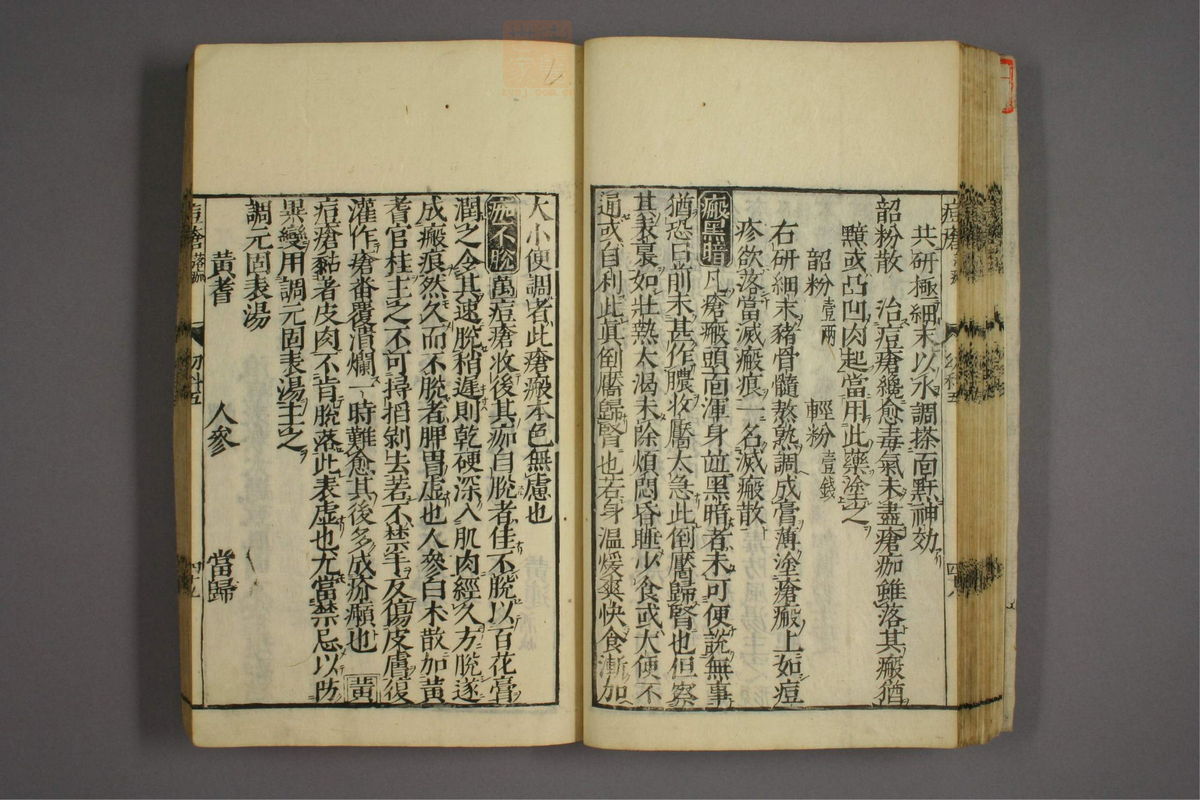 共研極細末以水調搽面䵟神効
韶粉散　治痘瘡纔愈毒氣未盡瘡痂雖落其瘢猶
黯或凸凹肉起當用此藥塗之
韶粉壹兩　輕粉壹錢
右研細末豬骨髓熬熟調成膏薄塗瘡瘢上如痘
疹欲落當滅瘢痕一名滅瘢散
瘢黑暗　凡瘡瘢頭面渾身並黑暗者未可便說無事
猶恐日前未甚作膿收靨太急此倒靨歸腎也但察
其表裏如壯熱大渴未除煩悶昏睡少食或大便不
通或自利此眞倒靨歸腎也若身溫煖爽快食漸加
痘瘡
幼科五
四十八
大小便調者此瘡瘢本色無慮也
痂不脫　萬痘瘡收後其痂自脫者佳不脫以百花膏
潤之令其速脫稍遲則乾硬深入肌肉經久方脫遂
成瘢痕然久而不脫者脾胃虛也人參白朮散加黃
耆官桂主之不可掃掐剝去若不禁手反傷皮膚復
灌作瘡番覆潰爛一時難愈其後多成疥癩也　黃
痘瘡黏著皮肉不肯脫落此表虛也尤當禁忌以防
異變用調元固表湯主之
調元固表湯
黃耆　人參　當歸
痘瘡
幼科五
四十九